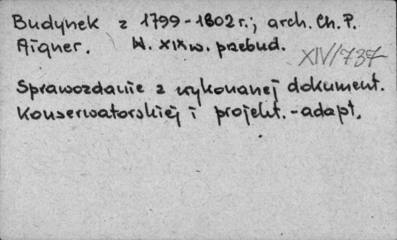 Budynek z 1799-1802 r.; arch. Ch. P.
Aigner. W. XIX w. przebud.
XIV/737
Sprawozdanie z wykonanej dokument.
Konserwatorskiej i projekt.-adapt.